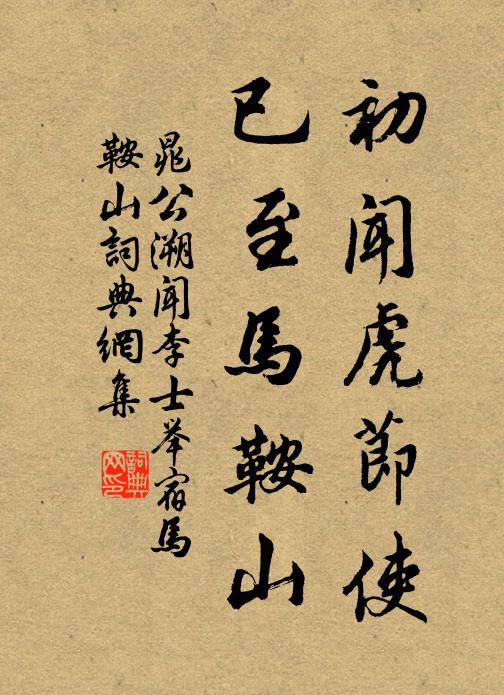 初聞虎節使
已至馬鞍山
晁公溯聞李士举宿馬
鞍山詞典網集
詞典网印